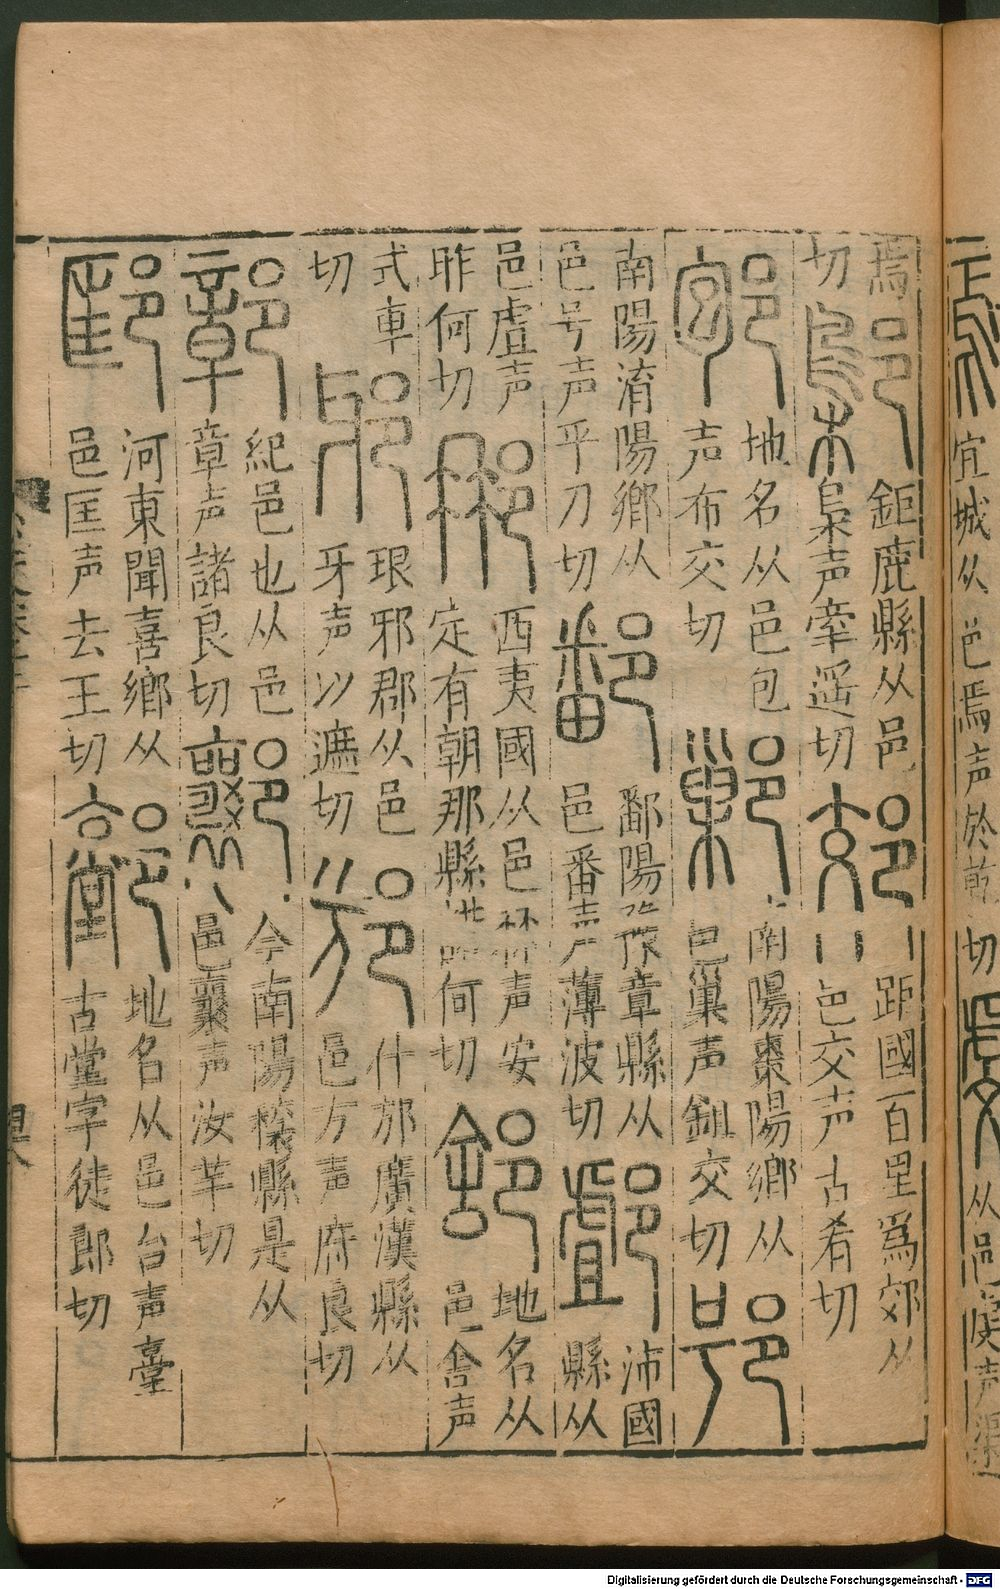 宜城从邑焉声於乾切
从邑虔声渠
焉
切
鄡
鉅鹿縣从邑
梟声牽遥切
郊
距國百里爲郊从
邑交声古肴切
地名从邑包
声布交切
鄛
南陽棗陽鄉从
邑巢声鉏交切
南陽淯陽鄉从
邑号声平刀切
鄱
鄱陽豫章縣从
邑番声薄波切
沛國
縣从
邑虘声
昨何切
西夷國从邑声安
定有朝那縣諾何切
地名从
邑舍声
式車
切
邪
琅邪郡从邑
牙声以遮切
邡
什邡廣漢縣从
邑方声府良切
鄣
紀邑也从邑
章声諸良切
今南陽穰縣是从
邑襄声汝羊切
河東聞喜鄉从
邑匡声去王切
地名从邑台声臺
古堂字徒郎切
Digitalisierung gefördert durch die Deutsche Forschungsgemeinschaft - DFG